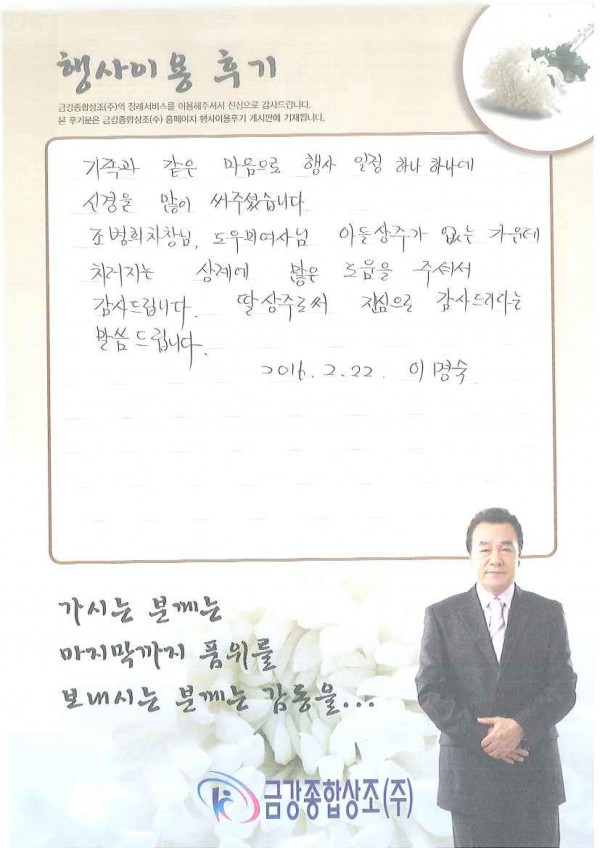 행사이용 후기
금강종합상조(주)의 장례서비스를 이용해주셔서 진심으로 감사드립니다.
본 후기문은 금강종합상조(주) 홈페이지 행사이용후기 게시판에 기재됩니다.
가족과 같은 마음으로 행사 일정 하나 하나에
신경을 많이 써주셨습니다
조병희차장님, 도우미여사님 아들상주가 없는 가운데
치러지는 상례에 많은 도움을 주셔서
감사드립니다. 딸상주로써 진심으로 감사드린다는
말씀 드립니다.
2016. 2. 22. 이명숙
가시는 분께는
마지막까지 품위를
보내시는 분께는 감동을...
금강종합상조(주)